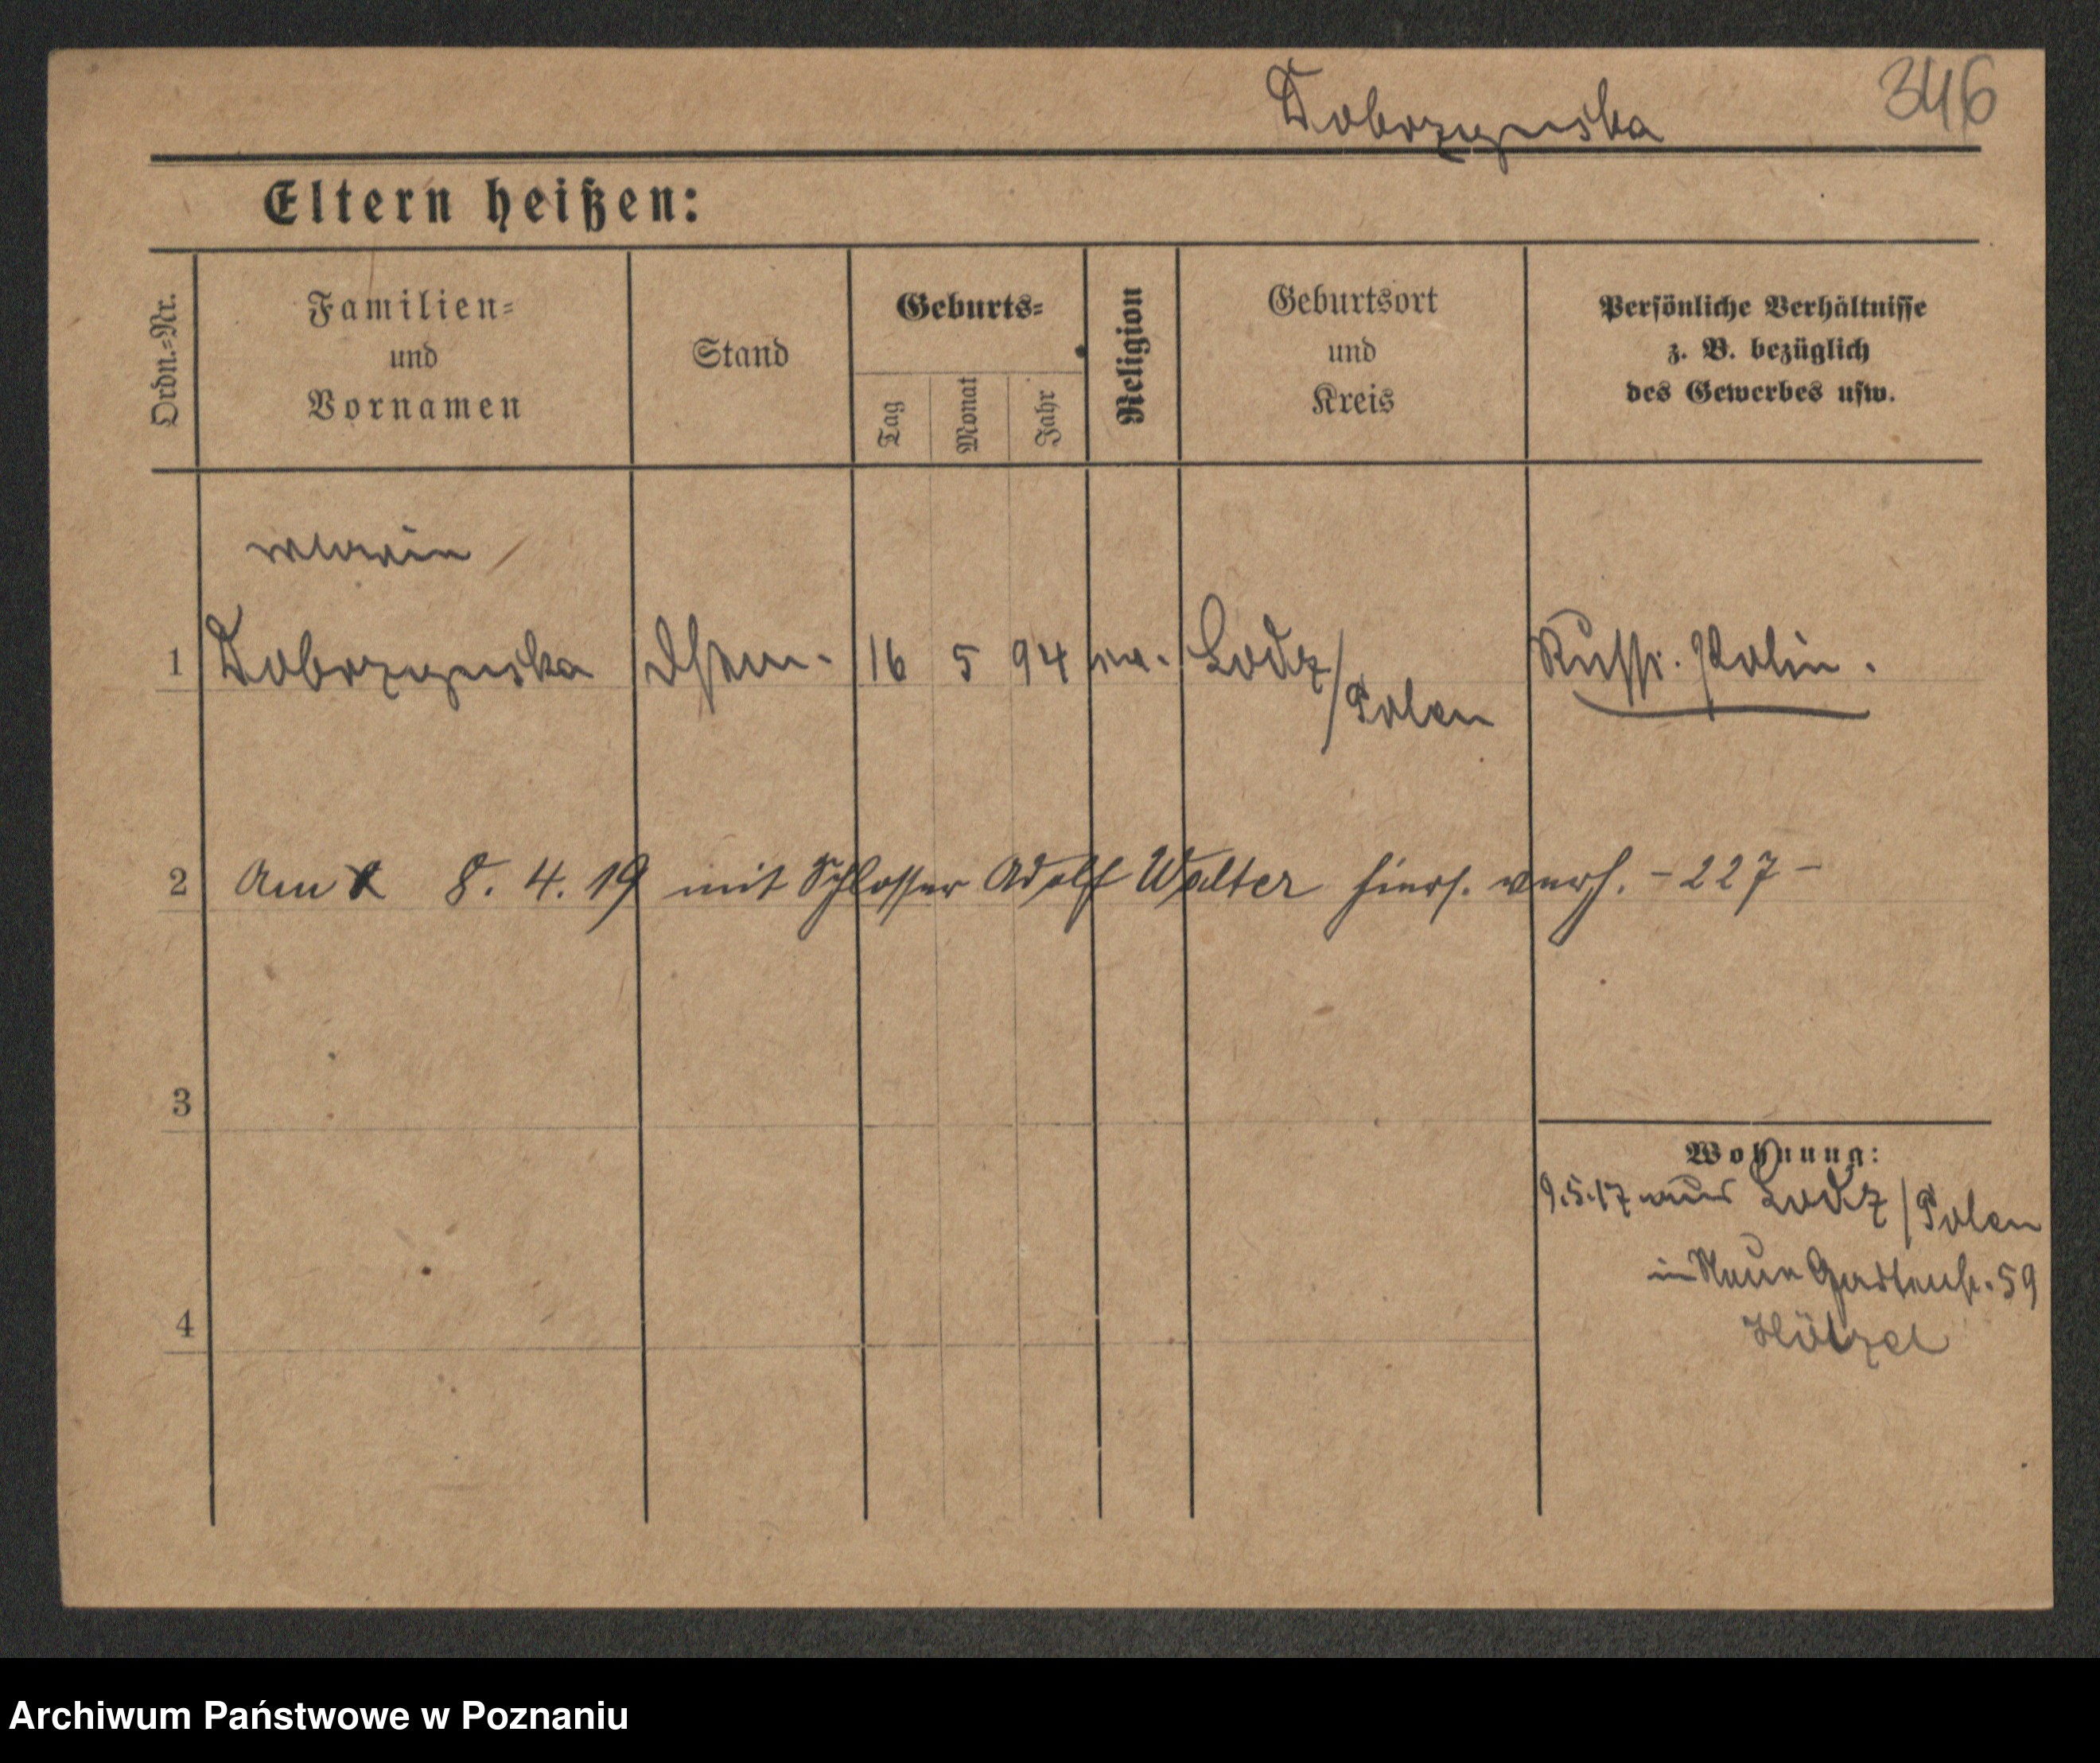 Dobrzynska
346
Eltern heißen:
Ordn.=Nr.
Familien=
und
Vornamen
Stand
Geburts=
Tag
Monat
Jahr
Religion
Geburtsort
und
Kreis
Persönliche Verhältnisse
z. B. bezüglich
des Gewerbes usw.
1 Dobrzynska 16 5 94 Lodz/
Polen
Russ. Polin.
2 Am 8. 4. 19 mit Schlosser Adolf Walter hiers. verh. - 227 -
3
Wohnung:
9.5.17 aus Lodz/Polen
in Neue Gartenstr. 59
4
Hötzel
Archiwum Państwowe w Poznaniu